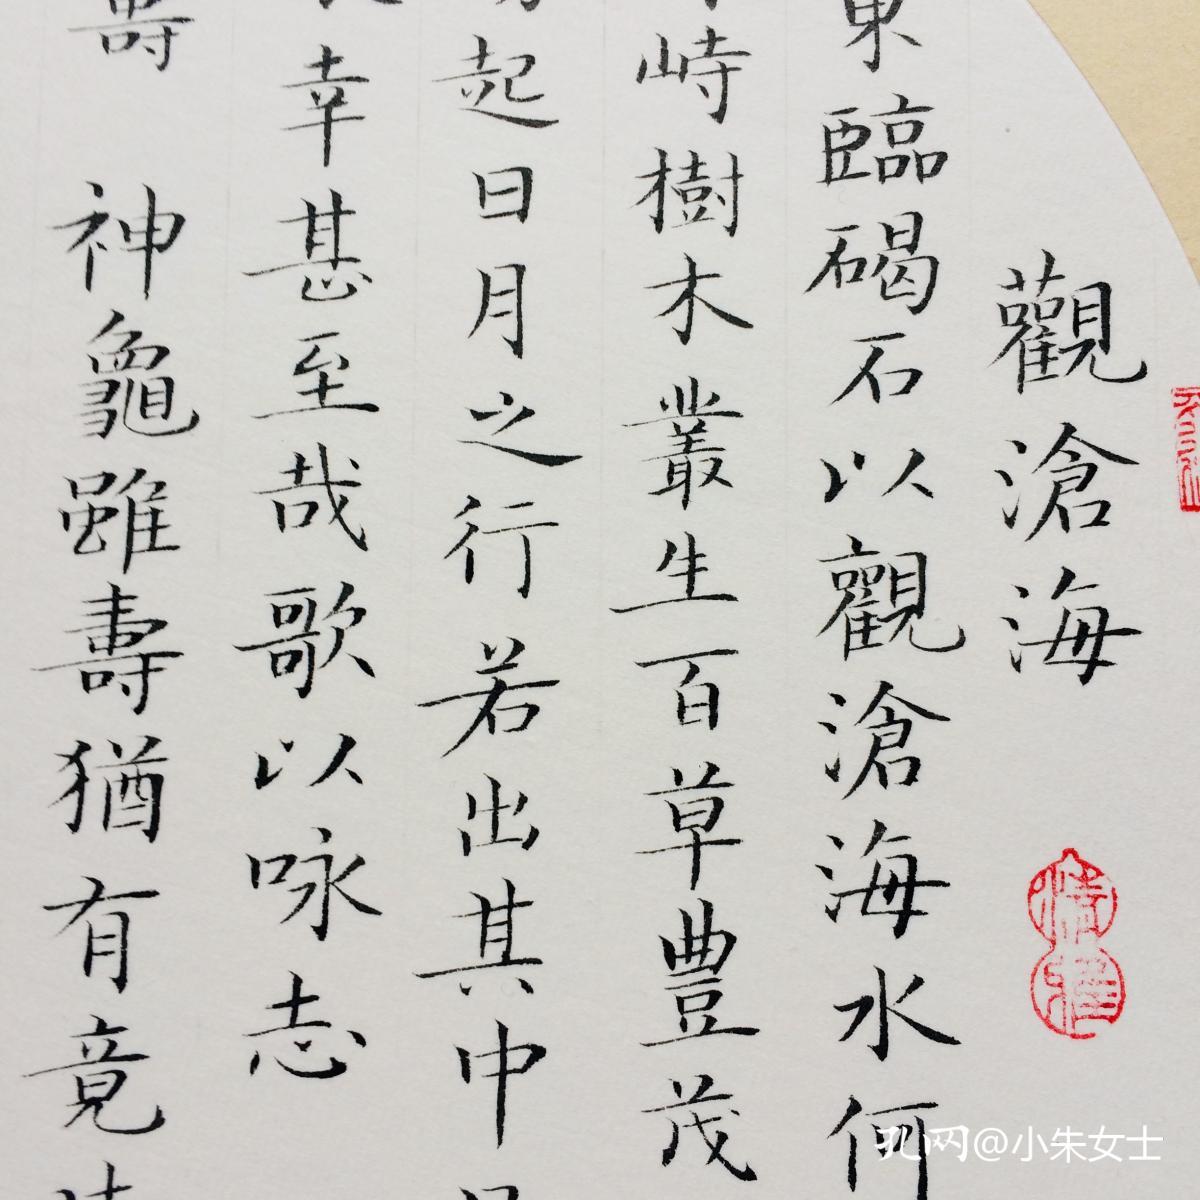 觀滄海
東臨碣石以觀滄海水何
峙樹木叢生百草豐茂
起日月之行若出其中
幸甚至哉歌以咏志
壽 神龜雖壽猶有竟
清雅
孔网@小朱女士